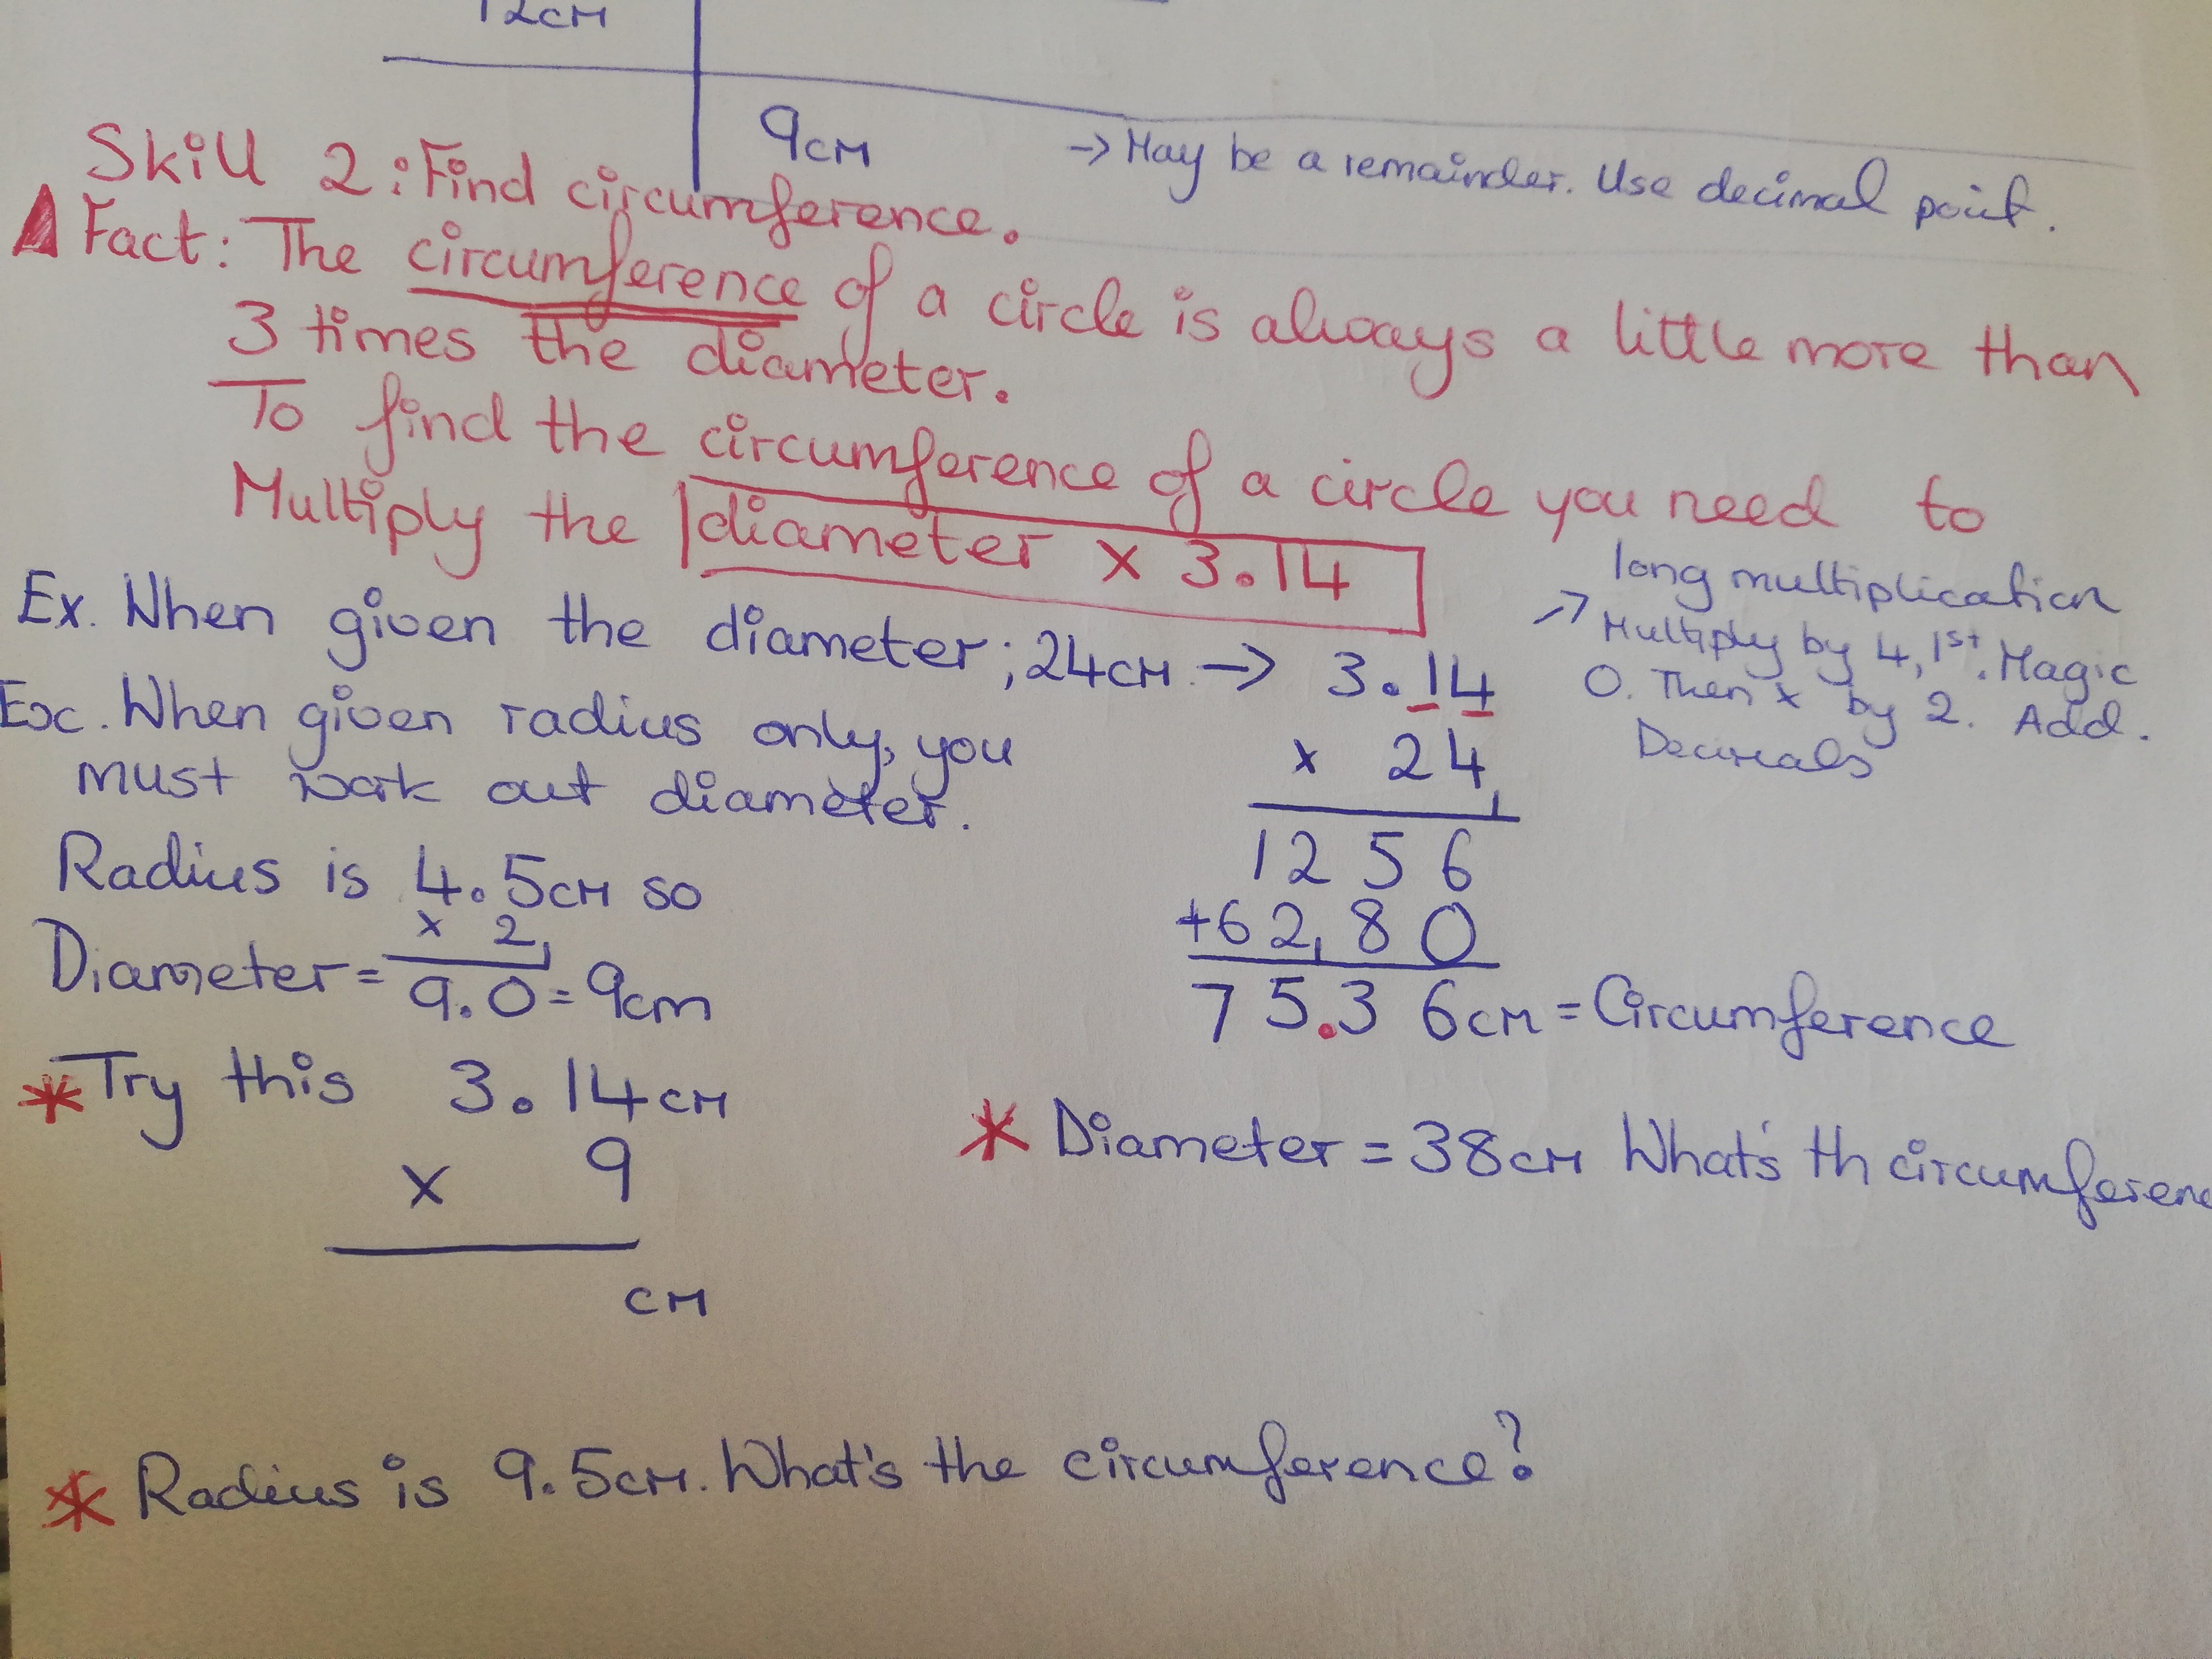 12cm
9cm
→ May be a remainder. Use decimal point.
Skill 2: Find circumference.
Fact: The circumference of a circle is always a little more than
3 times the diameter.
To find the circumference of a circle you need to
Multiply the diameter x 3.14
Ex. When given the diameter; 24cm →
3.14
x 24
1256
+6280
75.36cm = Circumference
→ long multiplication
Multiply by 4, 1st. Magic
0. Then x by 2. Add.
Decimals
Ex. When given radius only, you
must work out diameter.
Radius is 4.5cm so
x 2
Diameter = 9.0 = 9cm
* Try this 3.14cm
x 9
cm
* Diameter = 38cm What's th circumferen
* Radius is 9.5cm. What's the circumference?